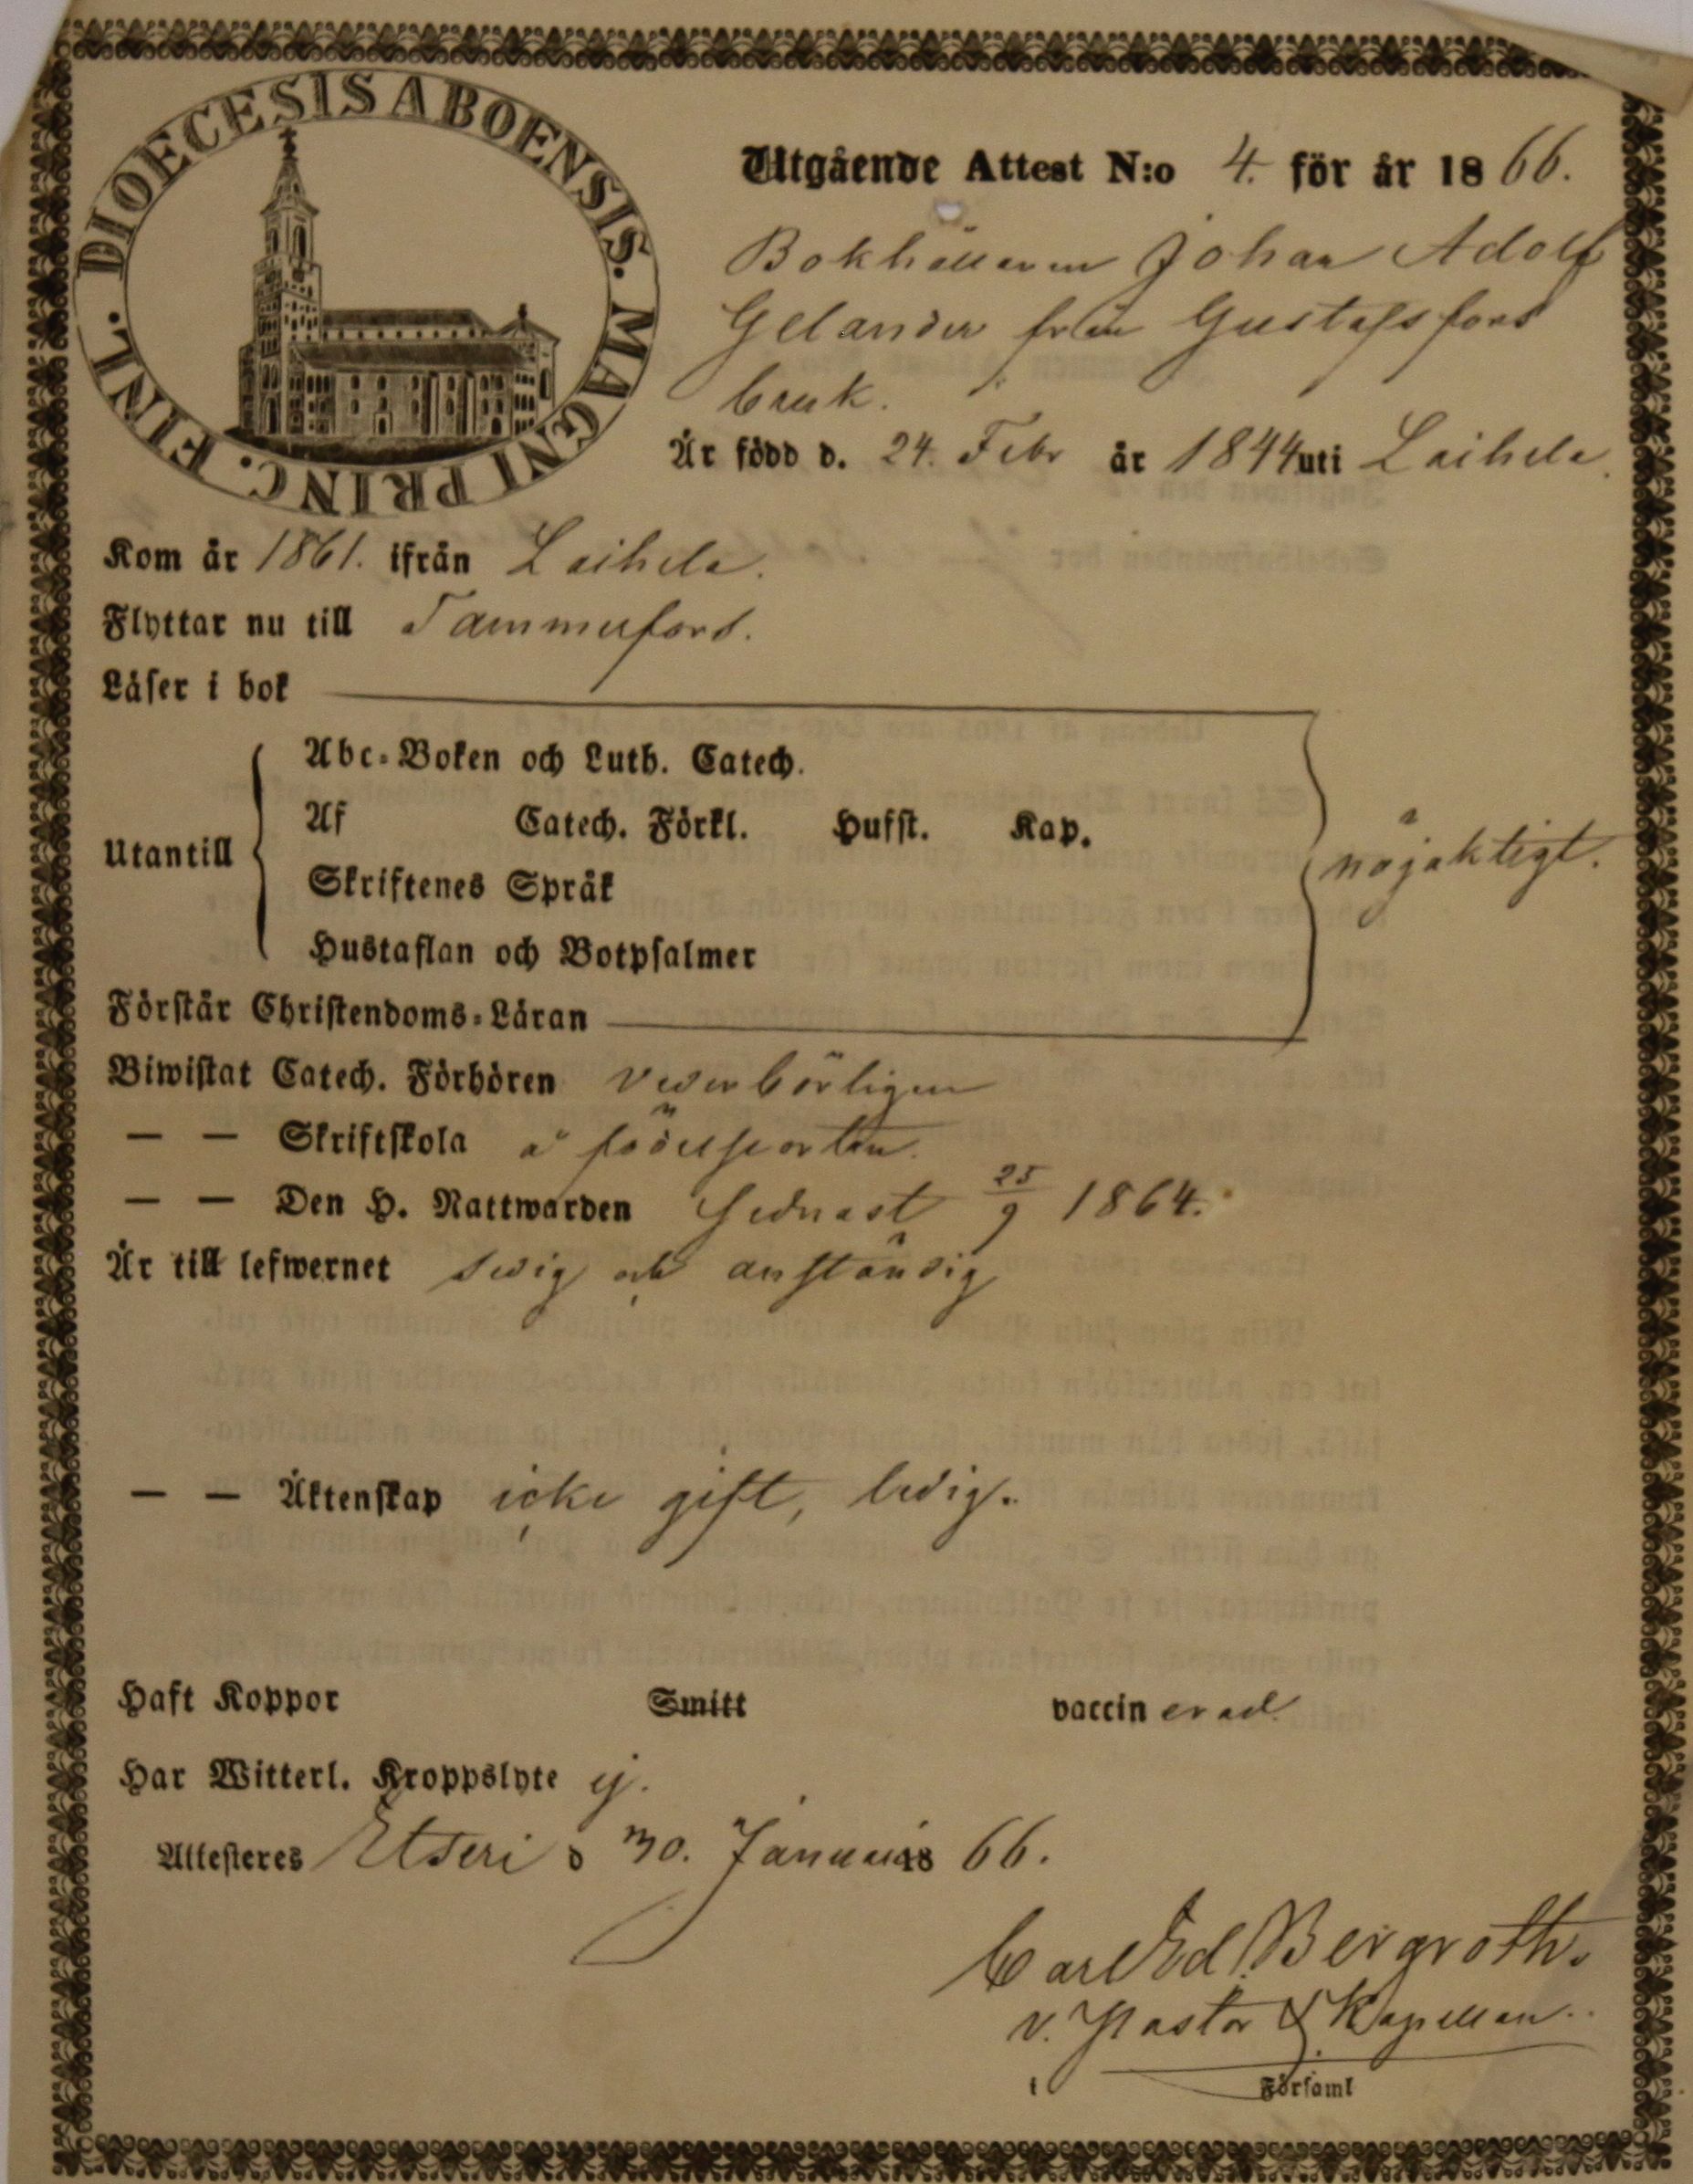 DIOECESIS ABOENSIS. MAGNI PRINC. FINL.
Utgående Attest N:o 4. för år 1866.
Bokhållaren Johan Adolf
Gelander från Gustafsfors
bruk.
Är född d. 24. Febr år 1844 uti Laihela.
Kom år 1861. ifrån Laihela.
Flyttar nu till Tammerfors.
Läser i bok
Abc-Boken och Luth. Catech.
Af Catech. Förkl. Hufst. Kap.
Utantill
nöjaktigt.
Skriftenes Språk
Hustaflan och Botpsalmer
Förstår Christendoms-Läran
Biwistat Catech. Förhören vederbörligen
— — Skriftskola å födelseorten.
— — Den H. Nattwarden sednast 25/9 1864.
Är till lefwernet sedig och anständig
— — Äktenskap icke gift, ledig.
Haft Koppor Smitt vaccinerad.
Har Witterl. Kroppslyte ej.
Attesteres Etseri d 30. Januari 1866.
Carl Ed. Bergroth.
v. Pastor & Kapellan.
i Församl